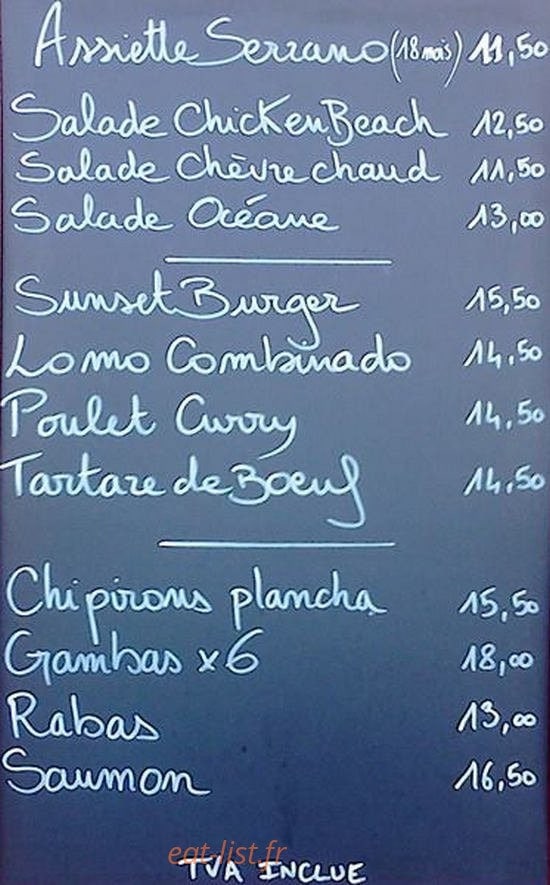 Assiette Serrano (18 mois) 11,50
Salade Chicken Beach 12,50
Salade Chèvre chaud 11,50
Salade Océane 13,00
Sunset Burger 15,50
Lomo Combinado 14,50
Poulet Curry 14,50
Tartare de Boeuf 14,50
Chipirons plancha 15,50
Gambas x 6 18,00
Rabas 13,00
Saumon 16,50
eat-list.fr
TVA INCLUE